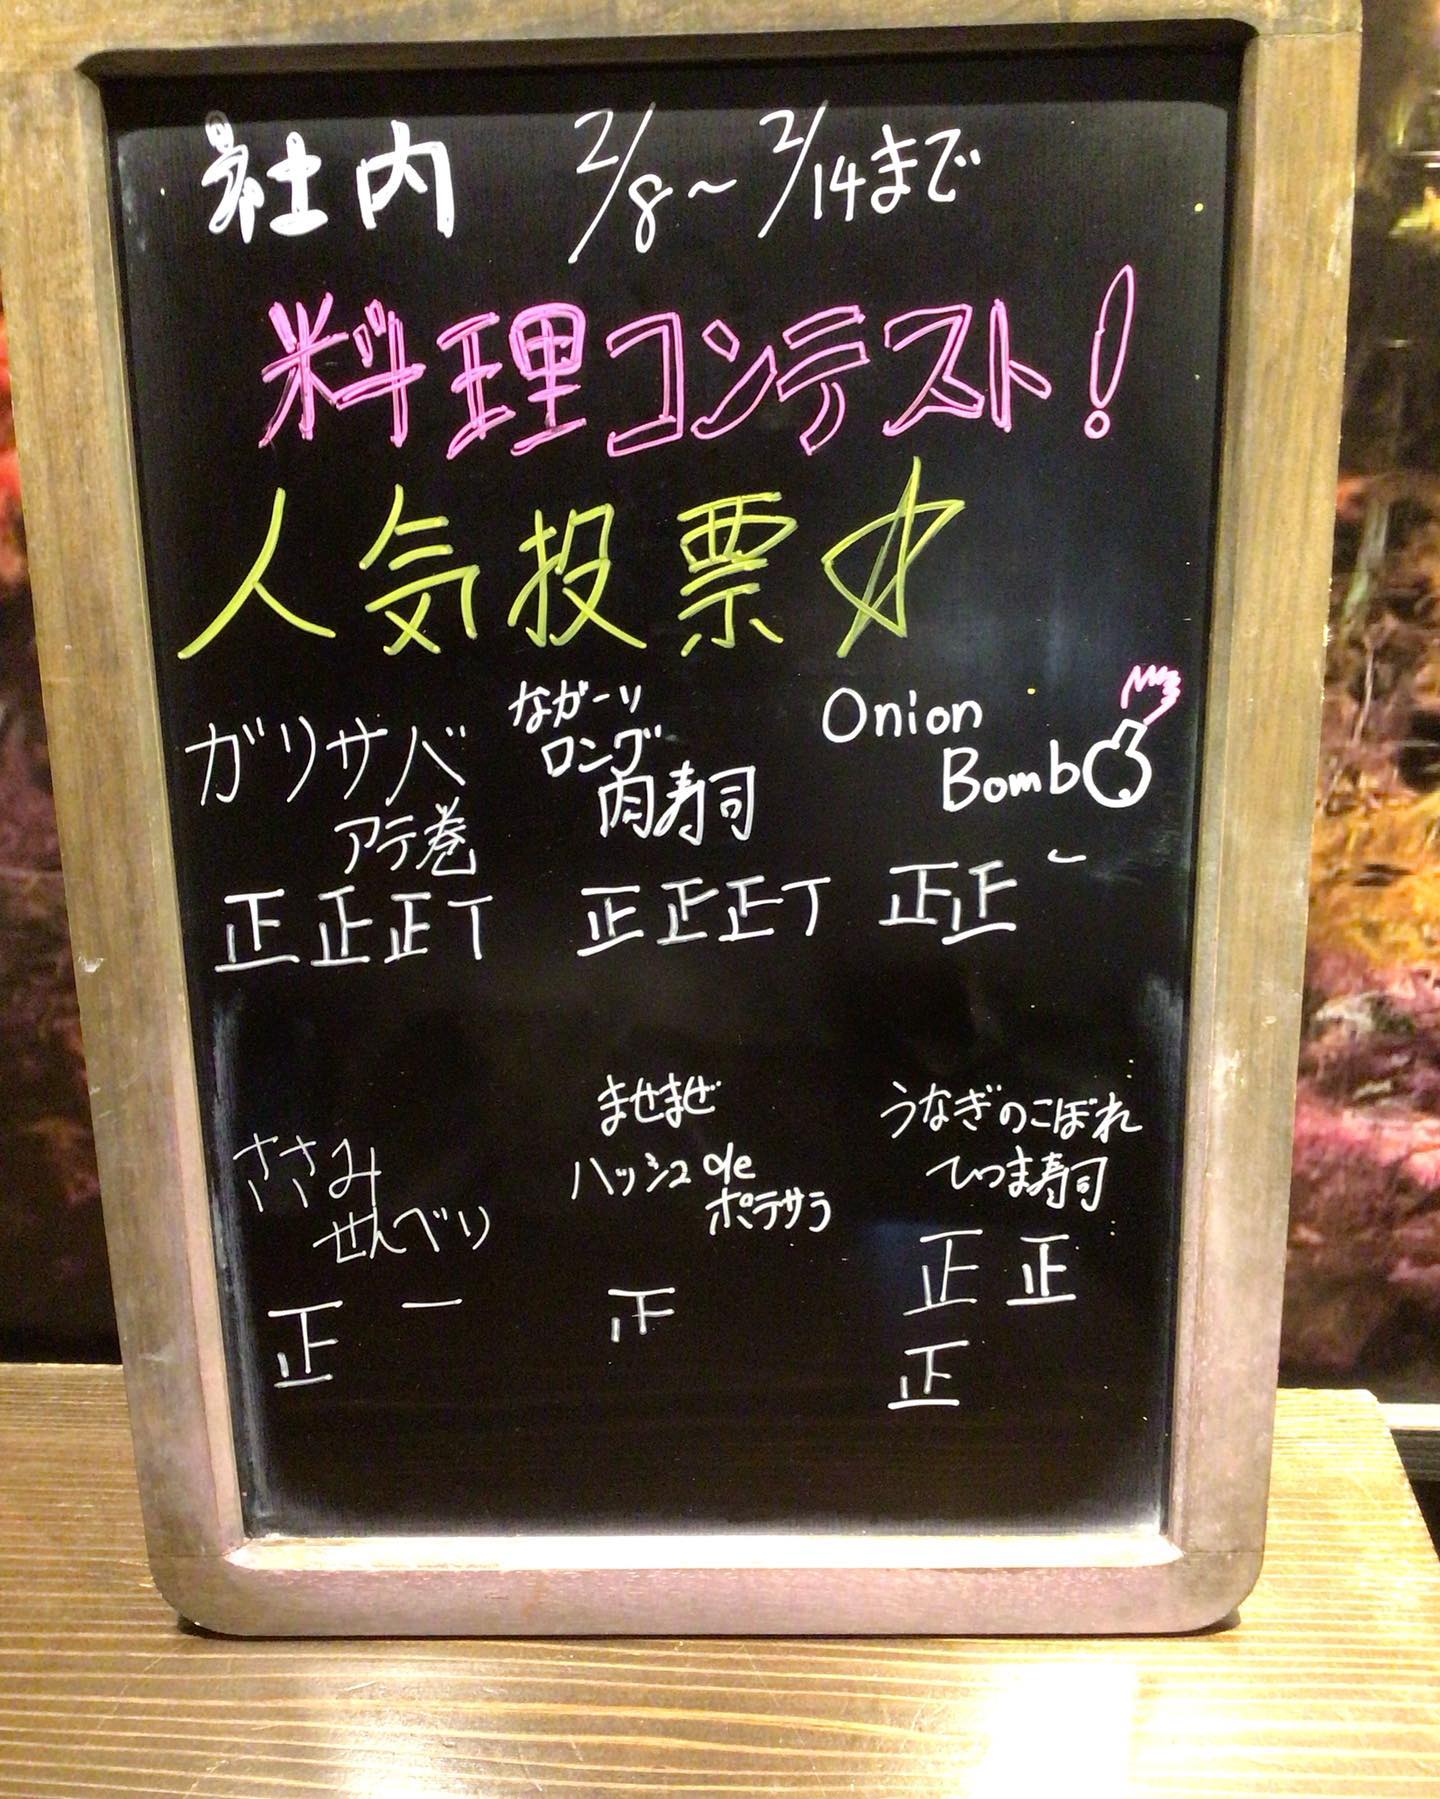 社内 2/8～2/14まで
料理コンテスト!
人気投票☆
ガリサバ
アテ巻
正正正T
ながーい
ロング
肉寿司
正正正T
Onion
Bomb
正正
ささみ
せんべい
正 一
まぜまぜ
ハッシュde
ポテサラ
正
うなぎのこぼれ
ひつま寿司
正 正
正